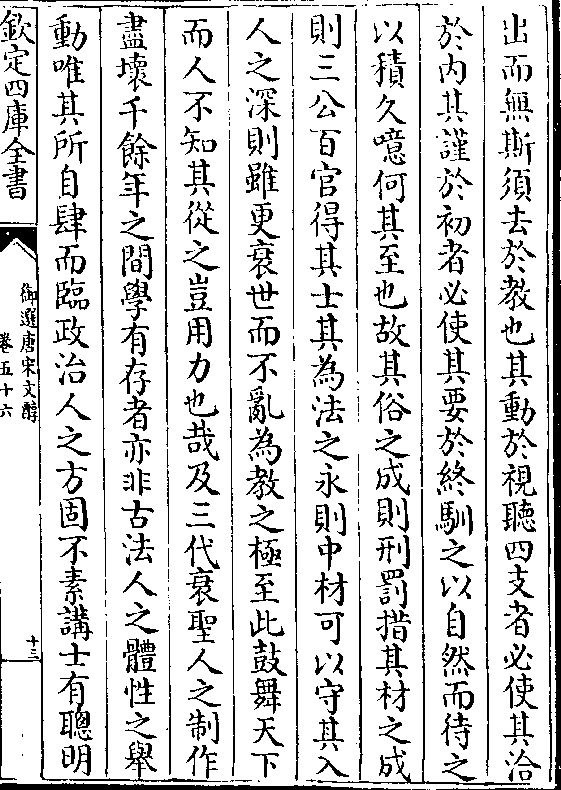 出而無斯須去於教也其動於視聽四支者必使其洽
於内其謹於初者必使其要於終馴之以自然而待之
以積久噫何其至也故其俗之成則刑罰措其材之成
則三公百官得其士其為法之永則中材可以守其入
人之深則雖更衰世而不亂為教之極至此鼓舞天下
而人不知其從之豈用力也哉及三代衰聖人之制作
盡壞千餘年之間學有存者亦非古法人之體性之舉
動唯其所自肆而臨政治人之方固不素講士有聰明
欽定四庫全書
御選唐宋文醇
卷五十六
十三